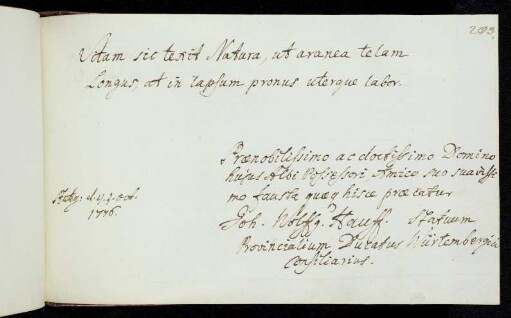 293.
Vitam sic texit Natura, ut aranea telam
Longus, at in lapsum pronus uterque labor.
Prænobilissimo ac doctissimo Domino
hujus Albi Possessori Amico suo suavissi-
mo fausta quæq hisce præcatur
Joh. Wolffg. Hauff. Statuum
Provincialium Ducatus Würtembergici
Consiliarius.
Stutg: d. 4.
1776.